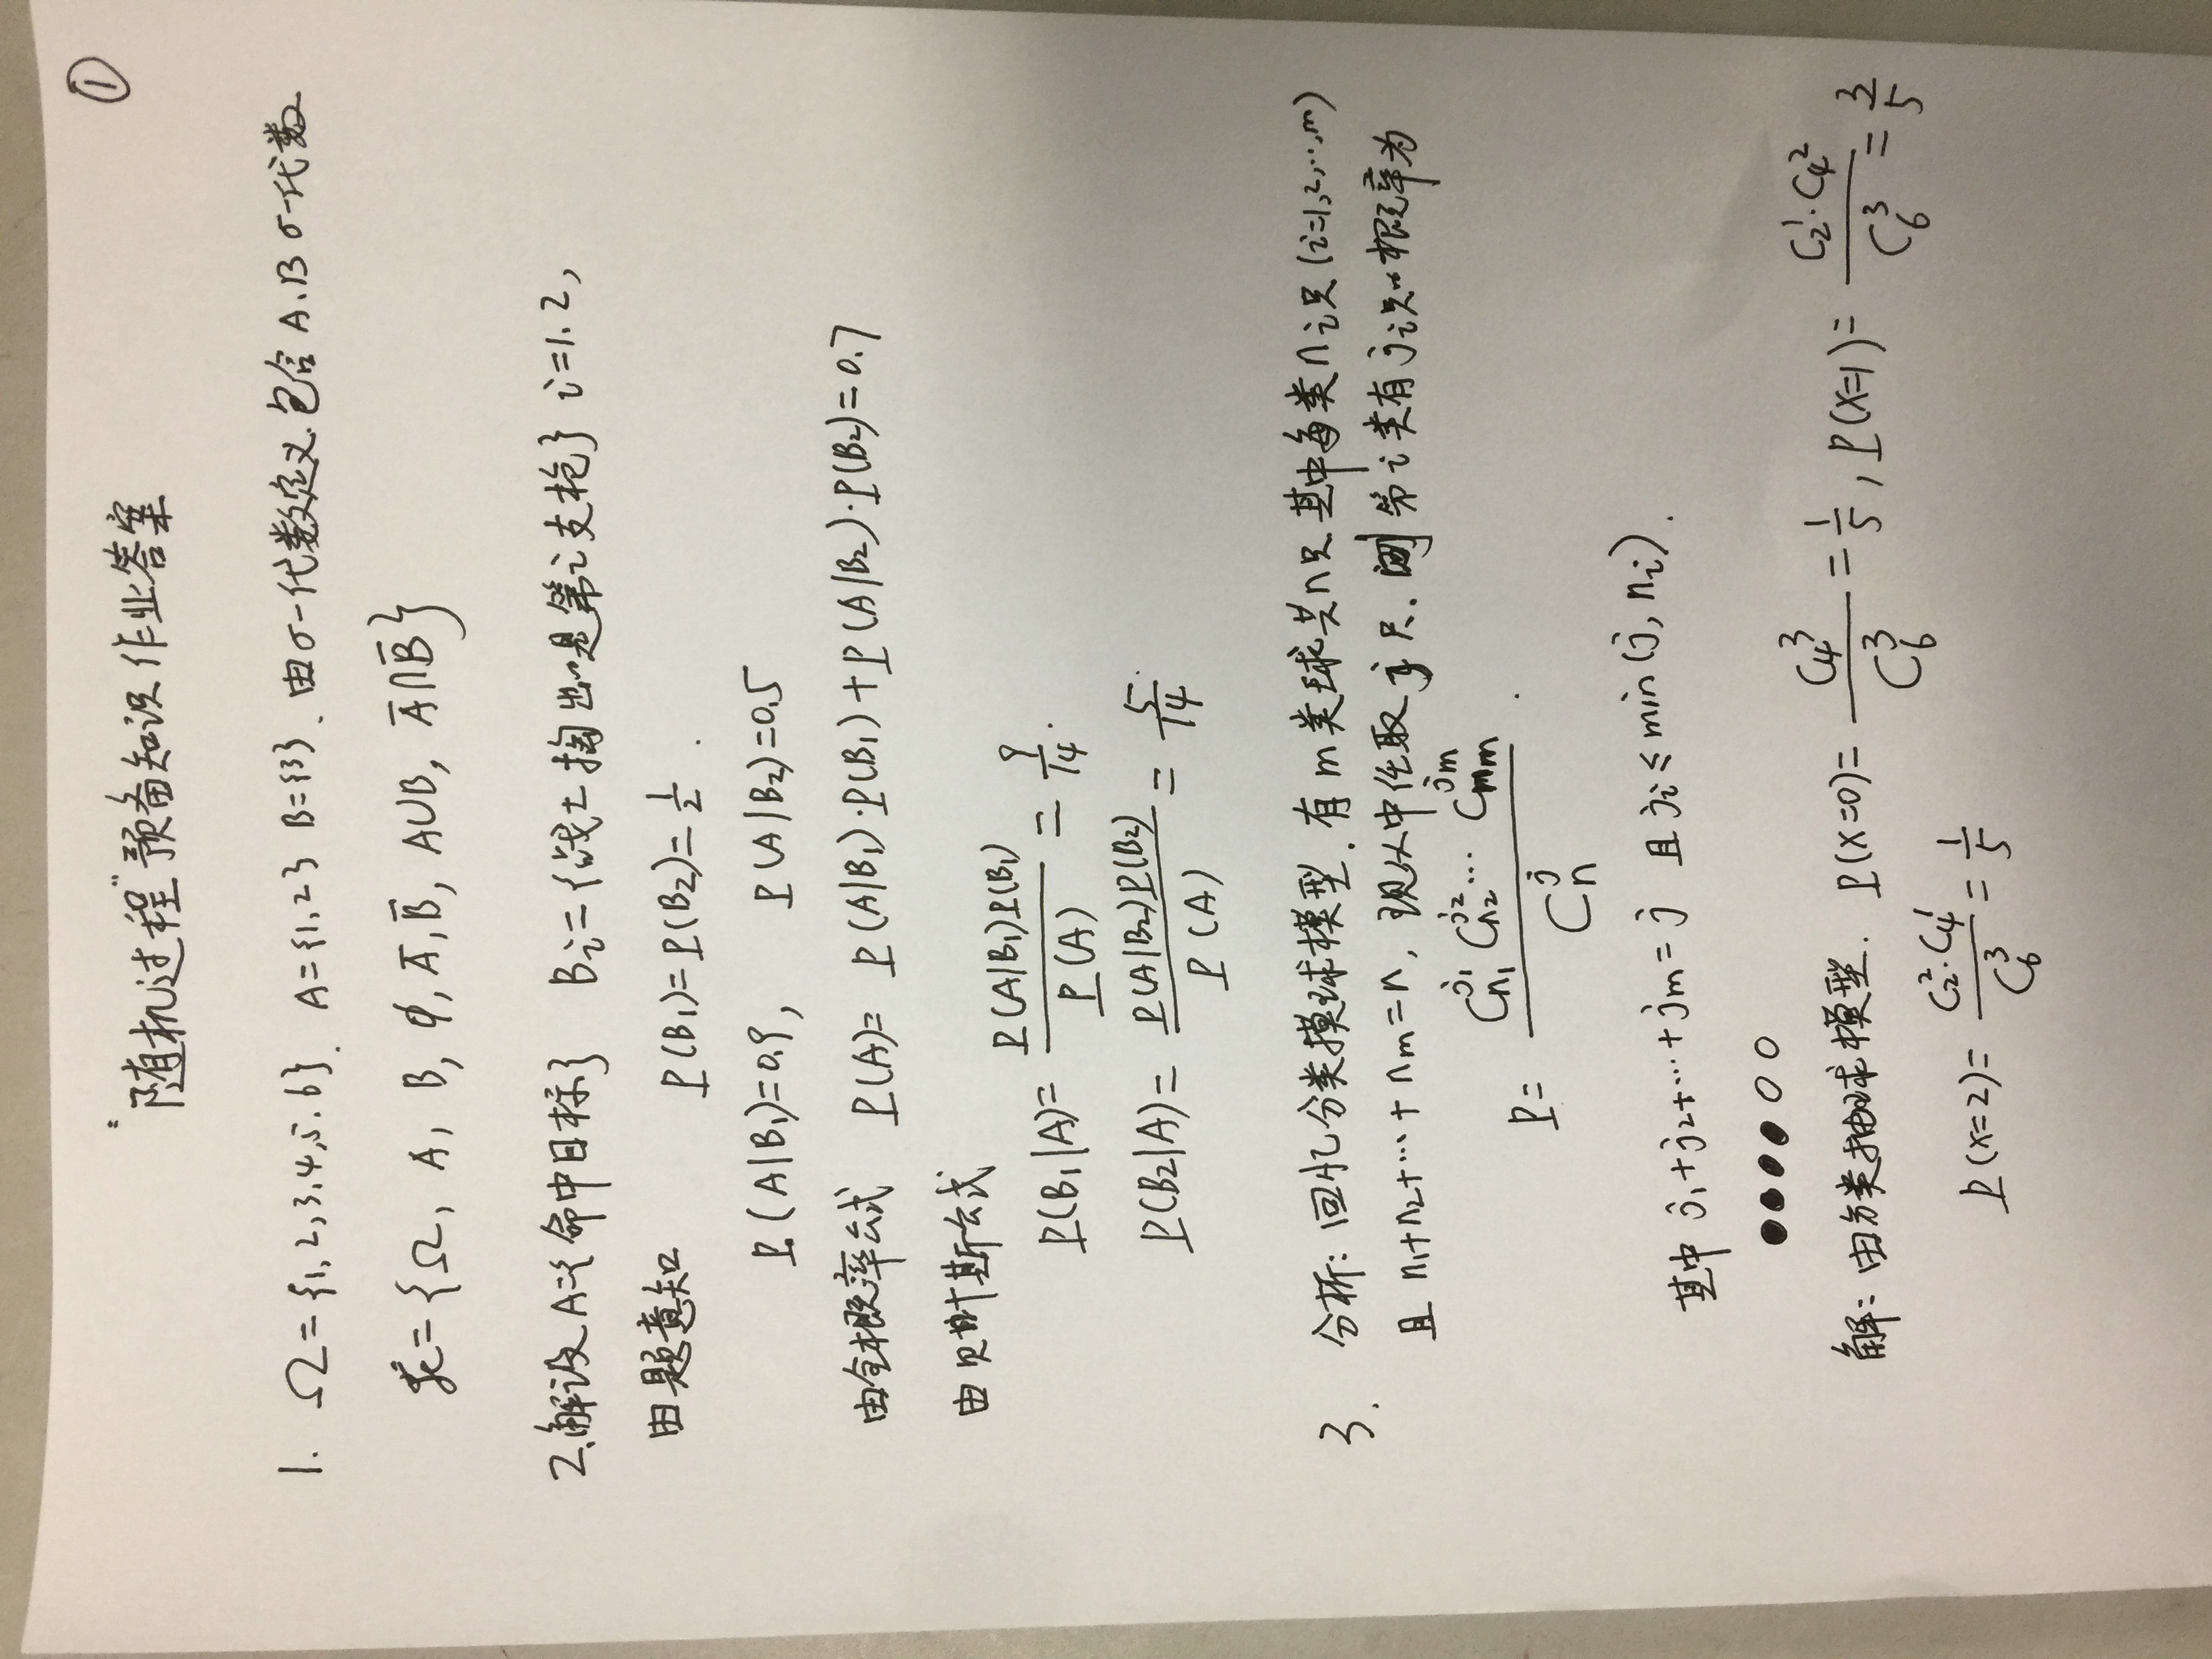 ①
“随机过程”预备知识作业答案
1. Ω={1,2,3,4,5,6}. A={1,2} B={3}. 由σ-代数定义.包含A.B σ-代数
ℱ={Ω, A, B, φ, A̅, B̅, A∪B, A̅∩B̅}
2.解设A={命中目标} Bi={战士掏出的是第i支枪} i=1.2,
由题意知 P(B₁)=P(B₂)=1/2.
P(A|B₁)=0.9, P(A|B₂)=0.5
由全概率公式 P(A)= P(A|B₁)·P(B₁)+P(A|B₂)·P(B₂)=0.7
由贝叶斯公式
P(B₁|A)= P(A|B₁)P(B₁)/P(A) = 9/14.
P(B₂|A)= P(A|B₂)P(B₂)/P(A) = 5/14
3. 分析:回忆分类摸球模型.有m类球共n只其中每类nᵢ只(i=1,2,…,m)
且n₁+n₂+…+nₘ=n,现从中任取j只.则第i类有jᵢ只的概率为
P= C_{n₁}^{j₁} C_{n₂}^{j₂} … C_{mm}^{jm} / C_n^j.
其中 j₁+j₂+…+jₘ=j 且jᵢ≤min(j, nᵢ).
解:由分类抽球模型. P(X=0)= C_4^3/C_6^3 = 1/5, P(X=1)= C_2^1·C_4^2/C_6^3 = 3/5
P(X=2)= C_2^2·C_4^1/C_6^3 = 1/5